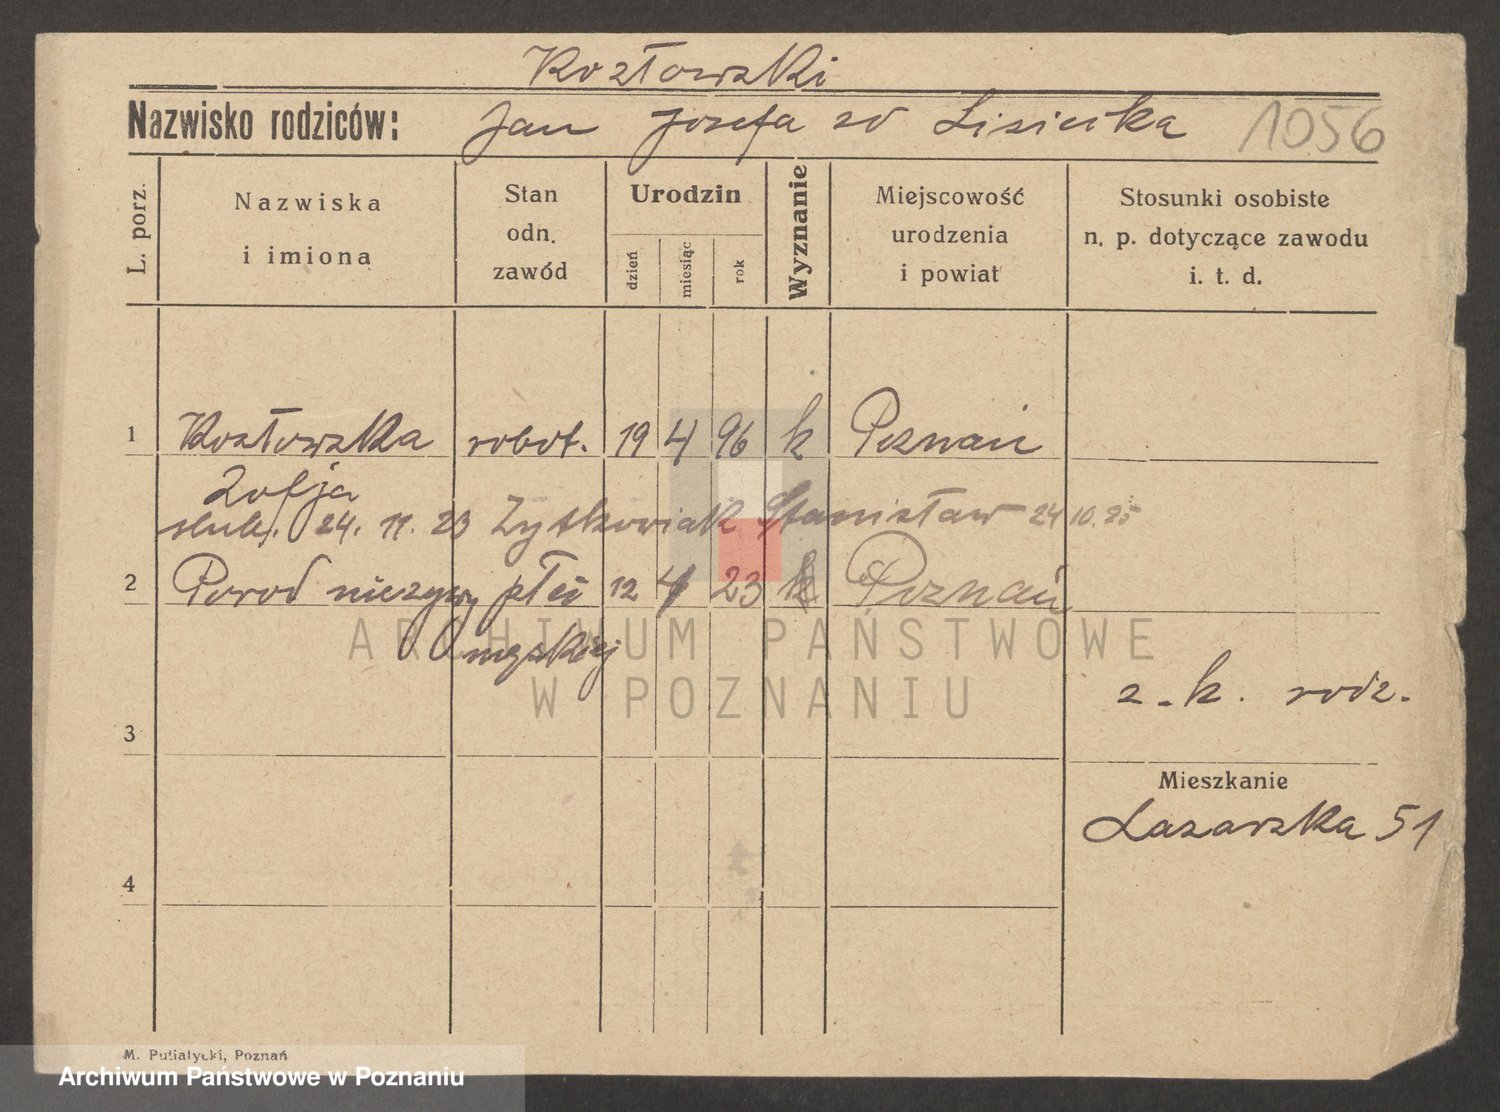 Kozłowski
Nazwisko rodziców: Jan Jozefa zd Lisiecka 1056
L. porz.
Nazwiska
i imiona
Stan
odn.
zawód
Urodzin
dzień
miesiąc
rok
Wyznanie
Miejscowość
urodzenia
i powiat
Stosunki osobiste
n. p. dotyczące zawodu
i. t. d.
1 Kozłowska robot. 19 4 96 k Poznań
Zofja
slub. 24. 11. 23 Zytkowiak Stanisław 24 10. 95
2 Porod nieżywy płci 12 4 23 k Poznań
męskiej
ARCHIWUM PAŃSTWOWE
W POZNANIU
z. k. rodz.
3
Mieszkanie
Łazarska 51
4
M. Putiatycki, Poznań
Archiwum Państwowe w Poznaniu